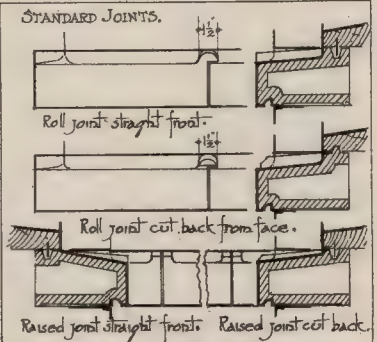 STANDARD JOINTS.
1½"
Roll joint straght front.
1½"
Roll joint cut back from face.
Raised joint straight front. Raised joint cut back.